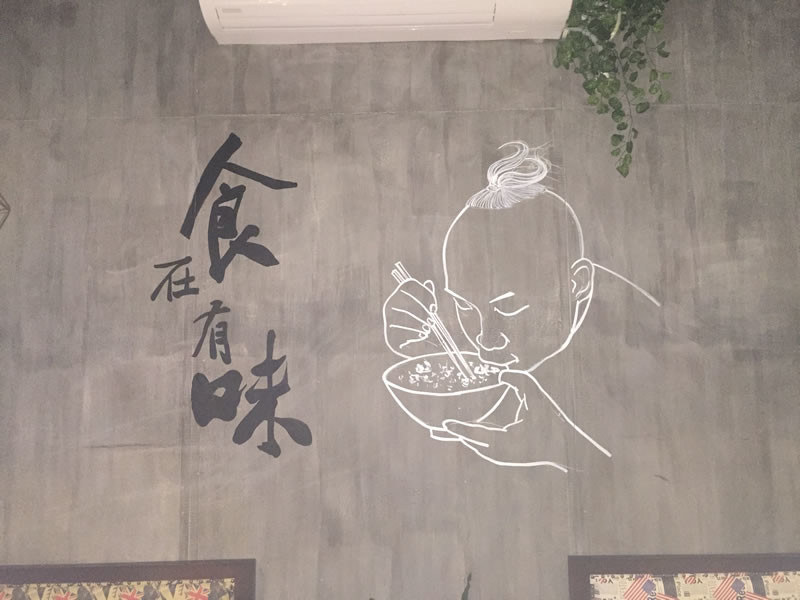 食在有味